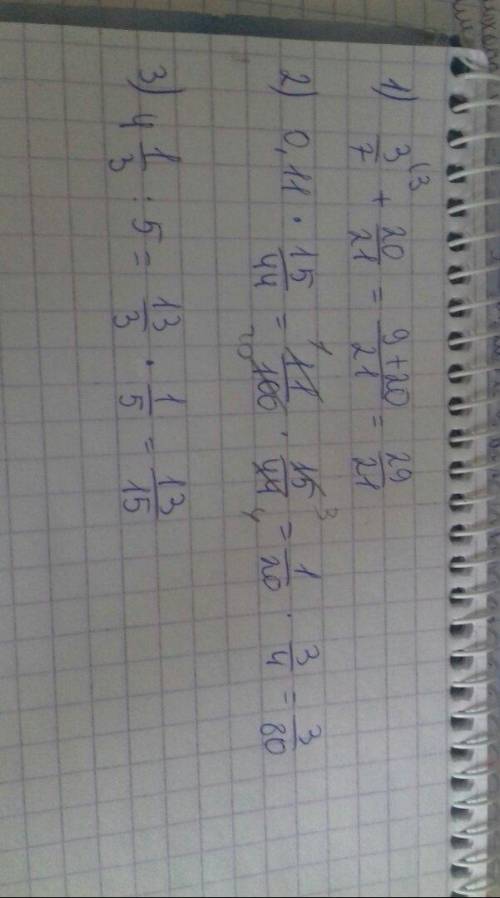 1) 3/7 (3 + 20/21 = (9+20)/21 = 29/21
2) 0,11 · 15/44 = 11/100 · 15/44 = 1/20 · 3/4 = 3/80
3) 4 1/3 : 5 = 13/3 · 1/5 = 13/15